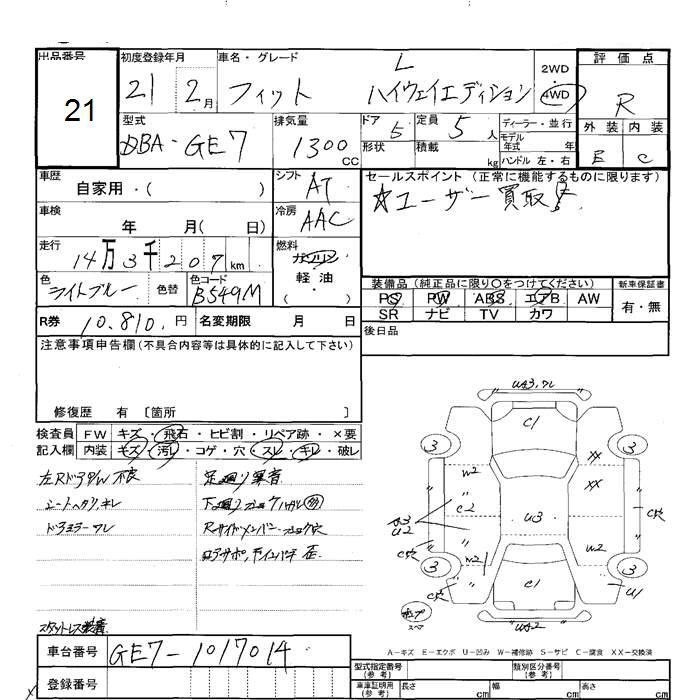 出品番号
21
初度登録年月
21 2月
車名・グレード
フィット L ハイウェイエディション
2WD
4WD
評価点
R
外装 内装
E C
型式
DBA-GE7
排気量
1300CC
ドア 5
形状
定員 5人
積載 kg
ディーラー・並行
モデル年式 年
ハンドル 左・右
車歴
自家用・( )
シフト
AT
セールスポイント (正常に機能するものに限ります)
☆ユーザー買取
車検
年 月( 日)
冷房
AAC
走行
14万3千207km
燃料
ガソリン
・
軽油
( )
色
ライトブルー
色替
色コード
B549M
装備品 (純正品に限り○をつけてください)
PS PW ABS エアB AW
SR ナビ TV カワ
新車保証書
有・無
R券 10,810.円 名変期限 月 日
後日品
注意事項申告欄 (不具合内容等は具体的に記入して下さい)
修復歴 有 〔箇所
検査員記入欄
FW キズ・飛石・ヒビ割・リペア跡・×要
内装 キズ・汚レ・コゲ・穴・スレ・キレ・破レ
左RドアP/W不良
シートヘタリ、キレ
ドアミラーワレ
足廻り異音
Rサイドメンバー
スタットレス装着
車台番号 GE7-1017014
登録番号
UA3,ワレ
C1
3
3
W2
XX
XX
C2
A3
U2
U3
C穴
C穴
W2
W2
3
3
C穴
C穴
C1
UA2
スマ
A-キズ E-エクボ U-凹み W-補修跡 S-サビ C-腐食 XX-交換済
型式指定番号(参考)
類別区分番号(参考)
車庫証明用(参考) 長さ cm 幅 cm 高さ cm